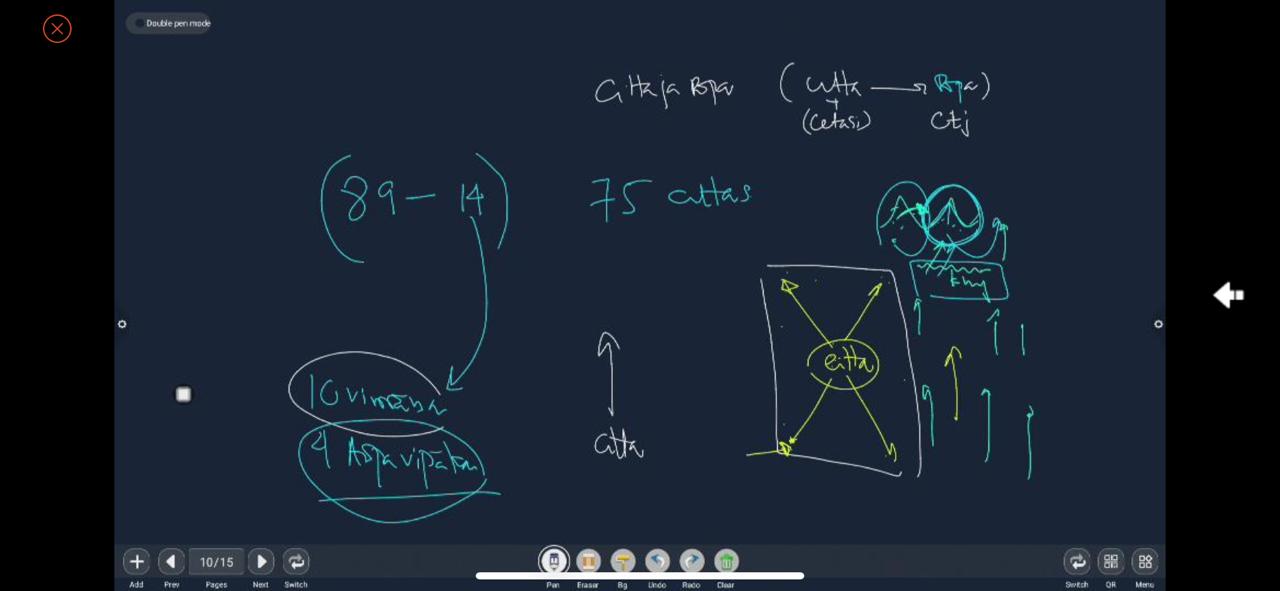 Double pen mode
Cittaja Rūpa (Citta → Rūpa)
+
(Cetasi) Ctj
(89 - 14) 75 cittas
citta
10 viññāṇa
4 Arūpavipāka
citta
Add
Prev
10/15
Pages
Next
Switch
Pen
Eraser
Bg
Undo
Redo
Clear
Switch
QR
Menu